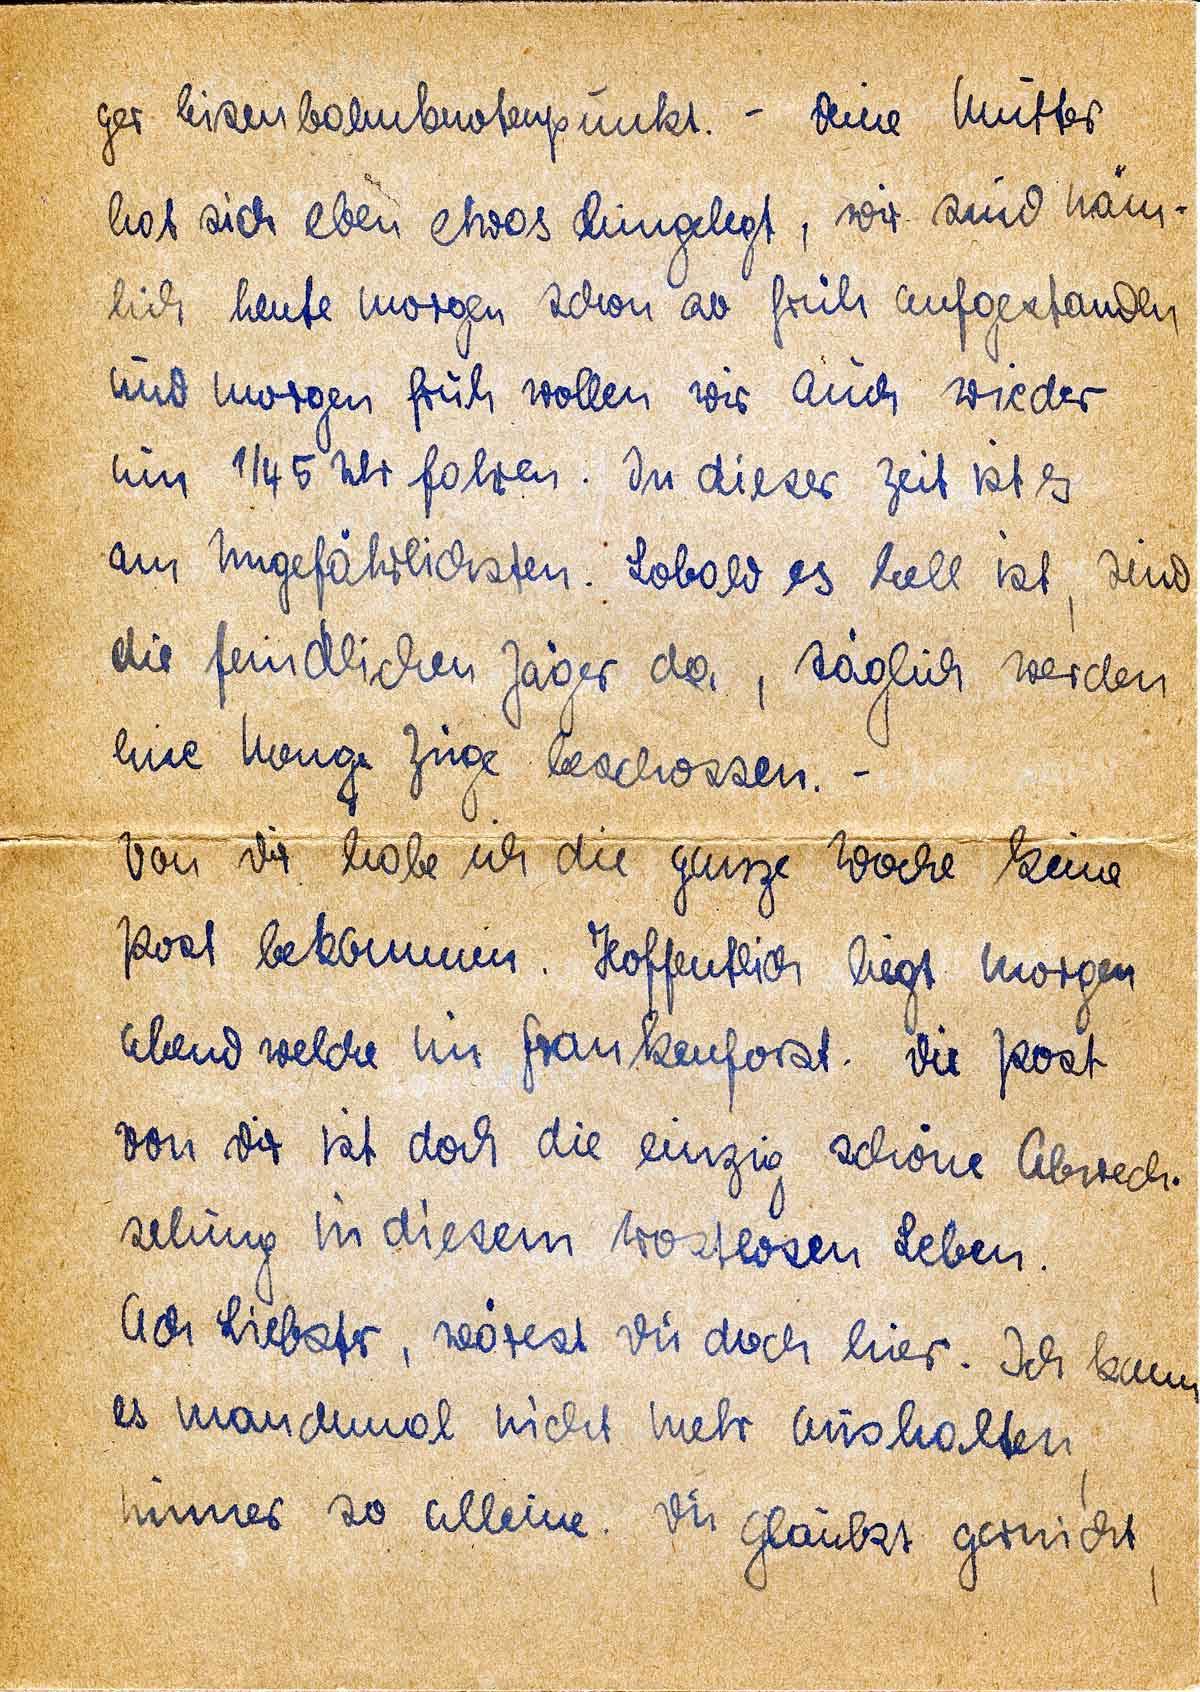 ger Eisenbahnknotenpunkt. - Deine Mutter
hat sich eben etwas hingelegt, wir sind näm-
lich heute morgen schon so früh aufgestanden
und morgen früh wollen wir auch wieder
um 1/45 Uhr fahren. In dieser Zeit ist es
am Ungefährlichsten. Sobald es hell ist, sind
die feindlichen Jäger da, täglich werden
eine Menge Züge beschossen. -
Von Dir habe ich die ganze Woche keine
Post bekommen. Hoffentlich liegt morgen
abend welche im Frankenforst. Die Post
von Dir ist doch die einzig schöne Abwech-
selung in diesem trostlosen Leben.
Ach Liebster, wärest Du doch hier. Ich kann
es manchmal nicht mehr aushalten,
immer so alleine. Du glaubst garnicht,